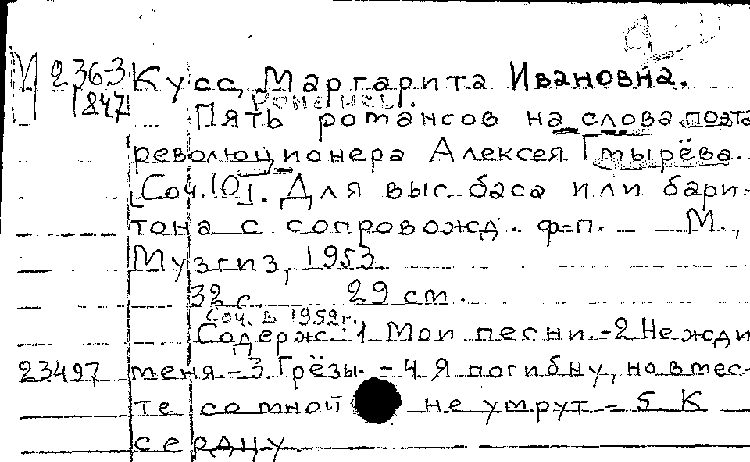 М 2363
1847
Кусс, Маргарита Ивановна.
Романсы.
Пять романсов на слова поэта
революционера Алексея Гмырёва.
[Соч. 10]. Для выс. баса или бари-
тона с сопровожд. ф-п. – М.,
Музгиз, 1953
32 с. 29 см.
Соч. в 1952 г.
Содерж.: 1 Мои песни. – 2 Не жди
23497 меня – 3 Грёзы. – 4 Я погибну, но вмес-
те со мной не умрут – 5 К
сердцу